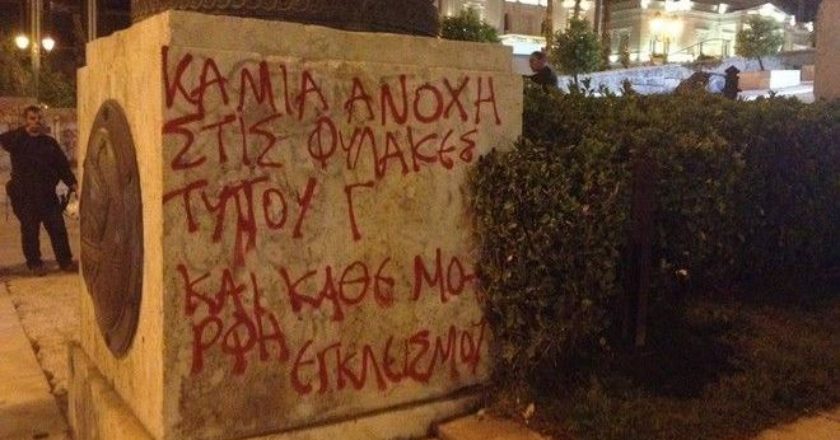 ΚΑΜΙΑ ΑΝΟΧΗ
ΣΤΙΣ ΦΥΛΑΚΕΣ
ΤΥΠΟΥ Γ
ΚΑΙ ΚΑΘΕ ΜΟ-
ΡΦΗ ΕΓΚΛΕΙΣΜΟΥ